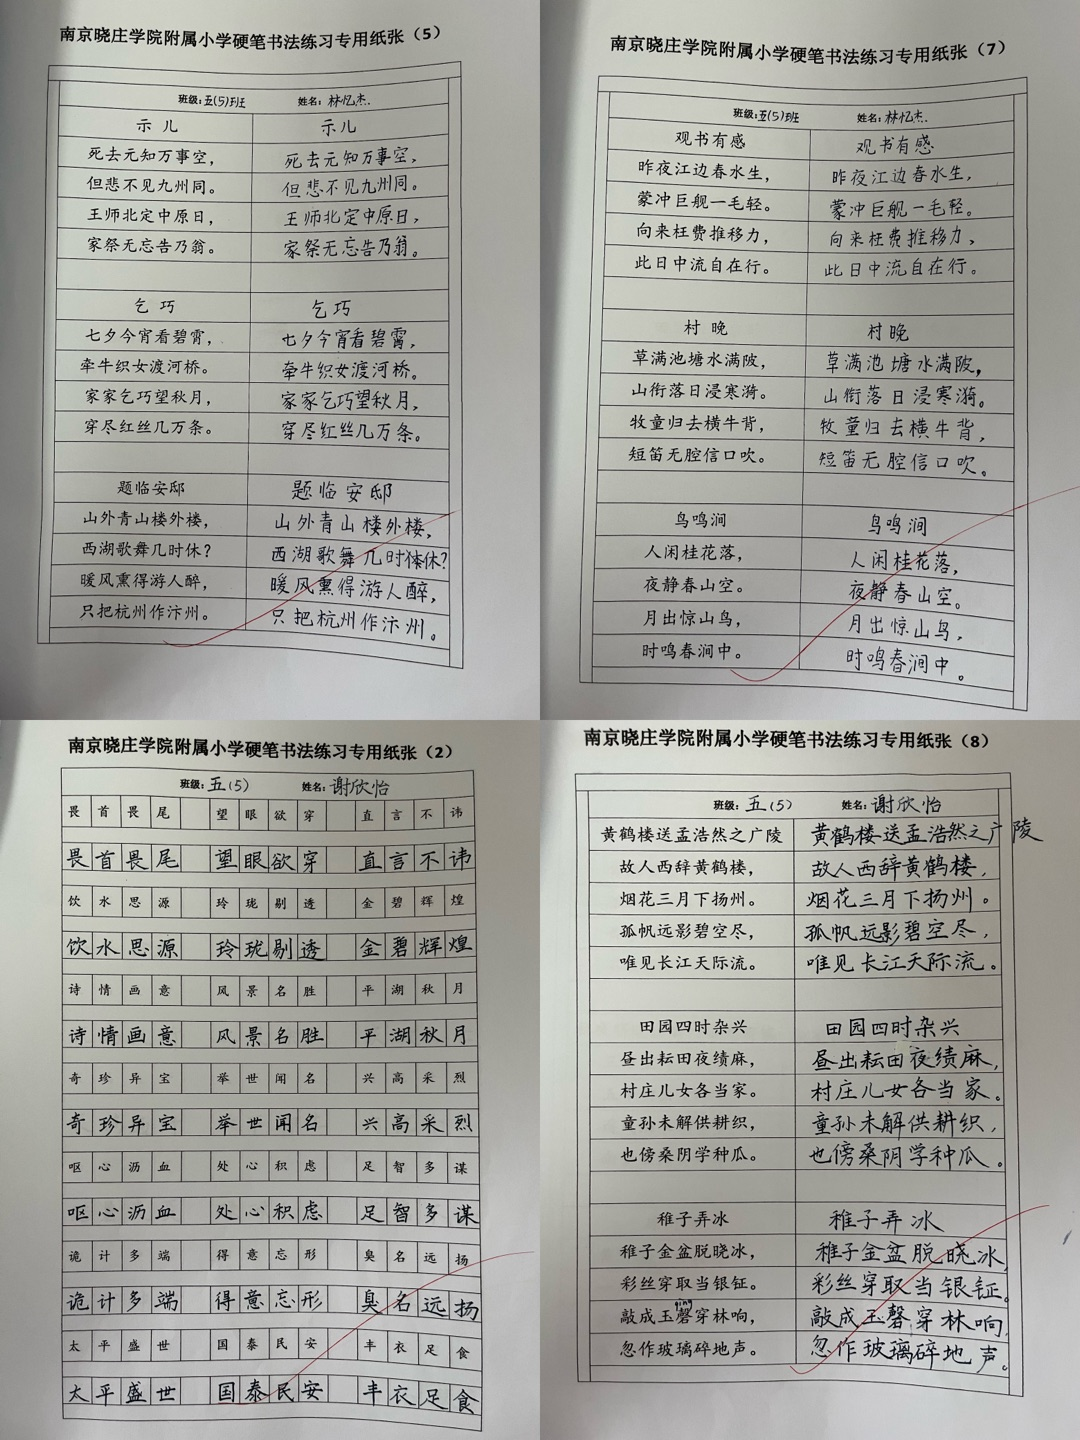 南京晓庄学院附属小学硬笔书法练习专用纸张（5）
班级：五(5)班 姓名：林忆杰.
示 儿 示儿
死去元知万事空， 死去元知万事空，
但悲不见九州同。 但悲不见九州同。
王师北定中原日， 王师北定中原日，
家祭无忘告乃翁。 家祭无忘告乃翁。
乞 巧 乞巧
七夕今宵看碧霄， 七夕今宵看碧霄，
牵牛织女渡河桥。 牵牛织女渡河桥。
家家乞巧望秋月， 家家乞巧望秋月，
穿尽红丝几万条。 穿尽红丝几万条。
题临安邸 题临安邸
山外青山楼外楼， 山外青山楼外楼，
西湖歌舞几时休？ 西湖歌舞几时休？
暖风熏得游人醉， 暖风熏得游人醉，
只把杭州作汴州。 只把杭州作汴州。
南京晓庄学院附属小学硬笔书法练习专用纸张（7）
班级：五(5)班 姓名：林忆杰.
观书有感 观书有感
昨夜江边春水生， 昨夜江边春水生，
蒙冲巨舰一毛轻。 蒙冲巨舰一毛轻。
向来枉费推移力， 向来枉费推移力，
此日中流自在行。 此日中流自在行。
村 晚 村晚
草满池塘水满陂， 草满池塘水满陂，
山衔落日浸寒漪。 山衔落日浸寒漪。
牧童归去横牛背， 牧童归去横牛背，
短笛无腔信口吹。 短笛无腔信口吹。
鸟鸣涧 鸟鸣涧
人闲桂花落， 人闲桂花落，
夜静春山空。 夜静春山空。
月出惊山鸟， 月出惊山鸟，
时鸣春涧中。 时鸣春涧中。
南京晓庄学院附属小学硬笔书法练习专用纸张（2）
班级：五(5) 姓名：谢欣怡
畏首畏尾 望眼欲穿 直言不讳
畏首畏尾 望眼欲穿 直言不讳
饮水思源 玲珑剔透 金碧辉煌
饮水思源 玲珑剔透 金碧辉煌
诗情画意 风景名胜 平湖秋月
诗情画意 风景名胜 平湖秋月
奇珍异宝 举世闻名 兴高采烈
奇珍异宝 举世闻名 兴高采烈
呕心沥血 处心积虑 足智多谋
呕心沥血 处心积虑 足智多谋
诡计多端 得意忘形 臭名远扬
诡计多端 得意忘形 臭名远扬
太平盛世 国泰民安 丰衣足食
太平盛世 国泰民安 丰衣足食
南京晓庄学院附属小学硬笔书法练习专用纸张（8）
班级：五(5) 姓名：谢欣怡
黄鹤楼送孟浩然之广陵 黄鹤楼送孟浩然之广陵
故人西辞黄鹤楼， 故人西辞黄鹤楼，
烟花三月下扬州。 烟花三月下扬州。
孤帆远影碧空尽， 孤帆远影碧空尽，
唯见长江天际流。 唯见长江天际流。
田园四时杂兴 田园四时杂兴
昼出耘田夜绩麻， 昼出耘田夜绩麻，
村庄儿女各当家。 村庄儿女各当家。
童孙未解供耕织， 童孙未解供耕织，
也傍桑阴学种瓜。 也傍桑阴学种瓜。
稚子弄冰 稚子弄冰
稚子金盆脱晓冰， 稚子金盆脱晓冰，
彩丝穿取当银钲。 彩丝穿取当银钲。
qìng
敲成玉磬穿林响， 敲成玉磬穿林响，
忽作玻璃碎地声。 忽作玻璃碎地声。